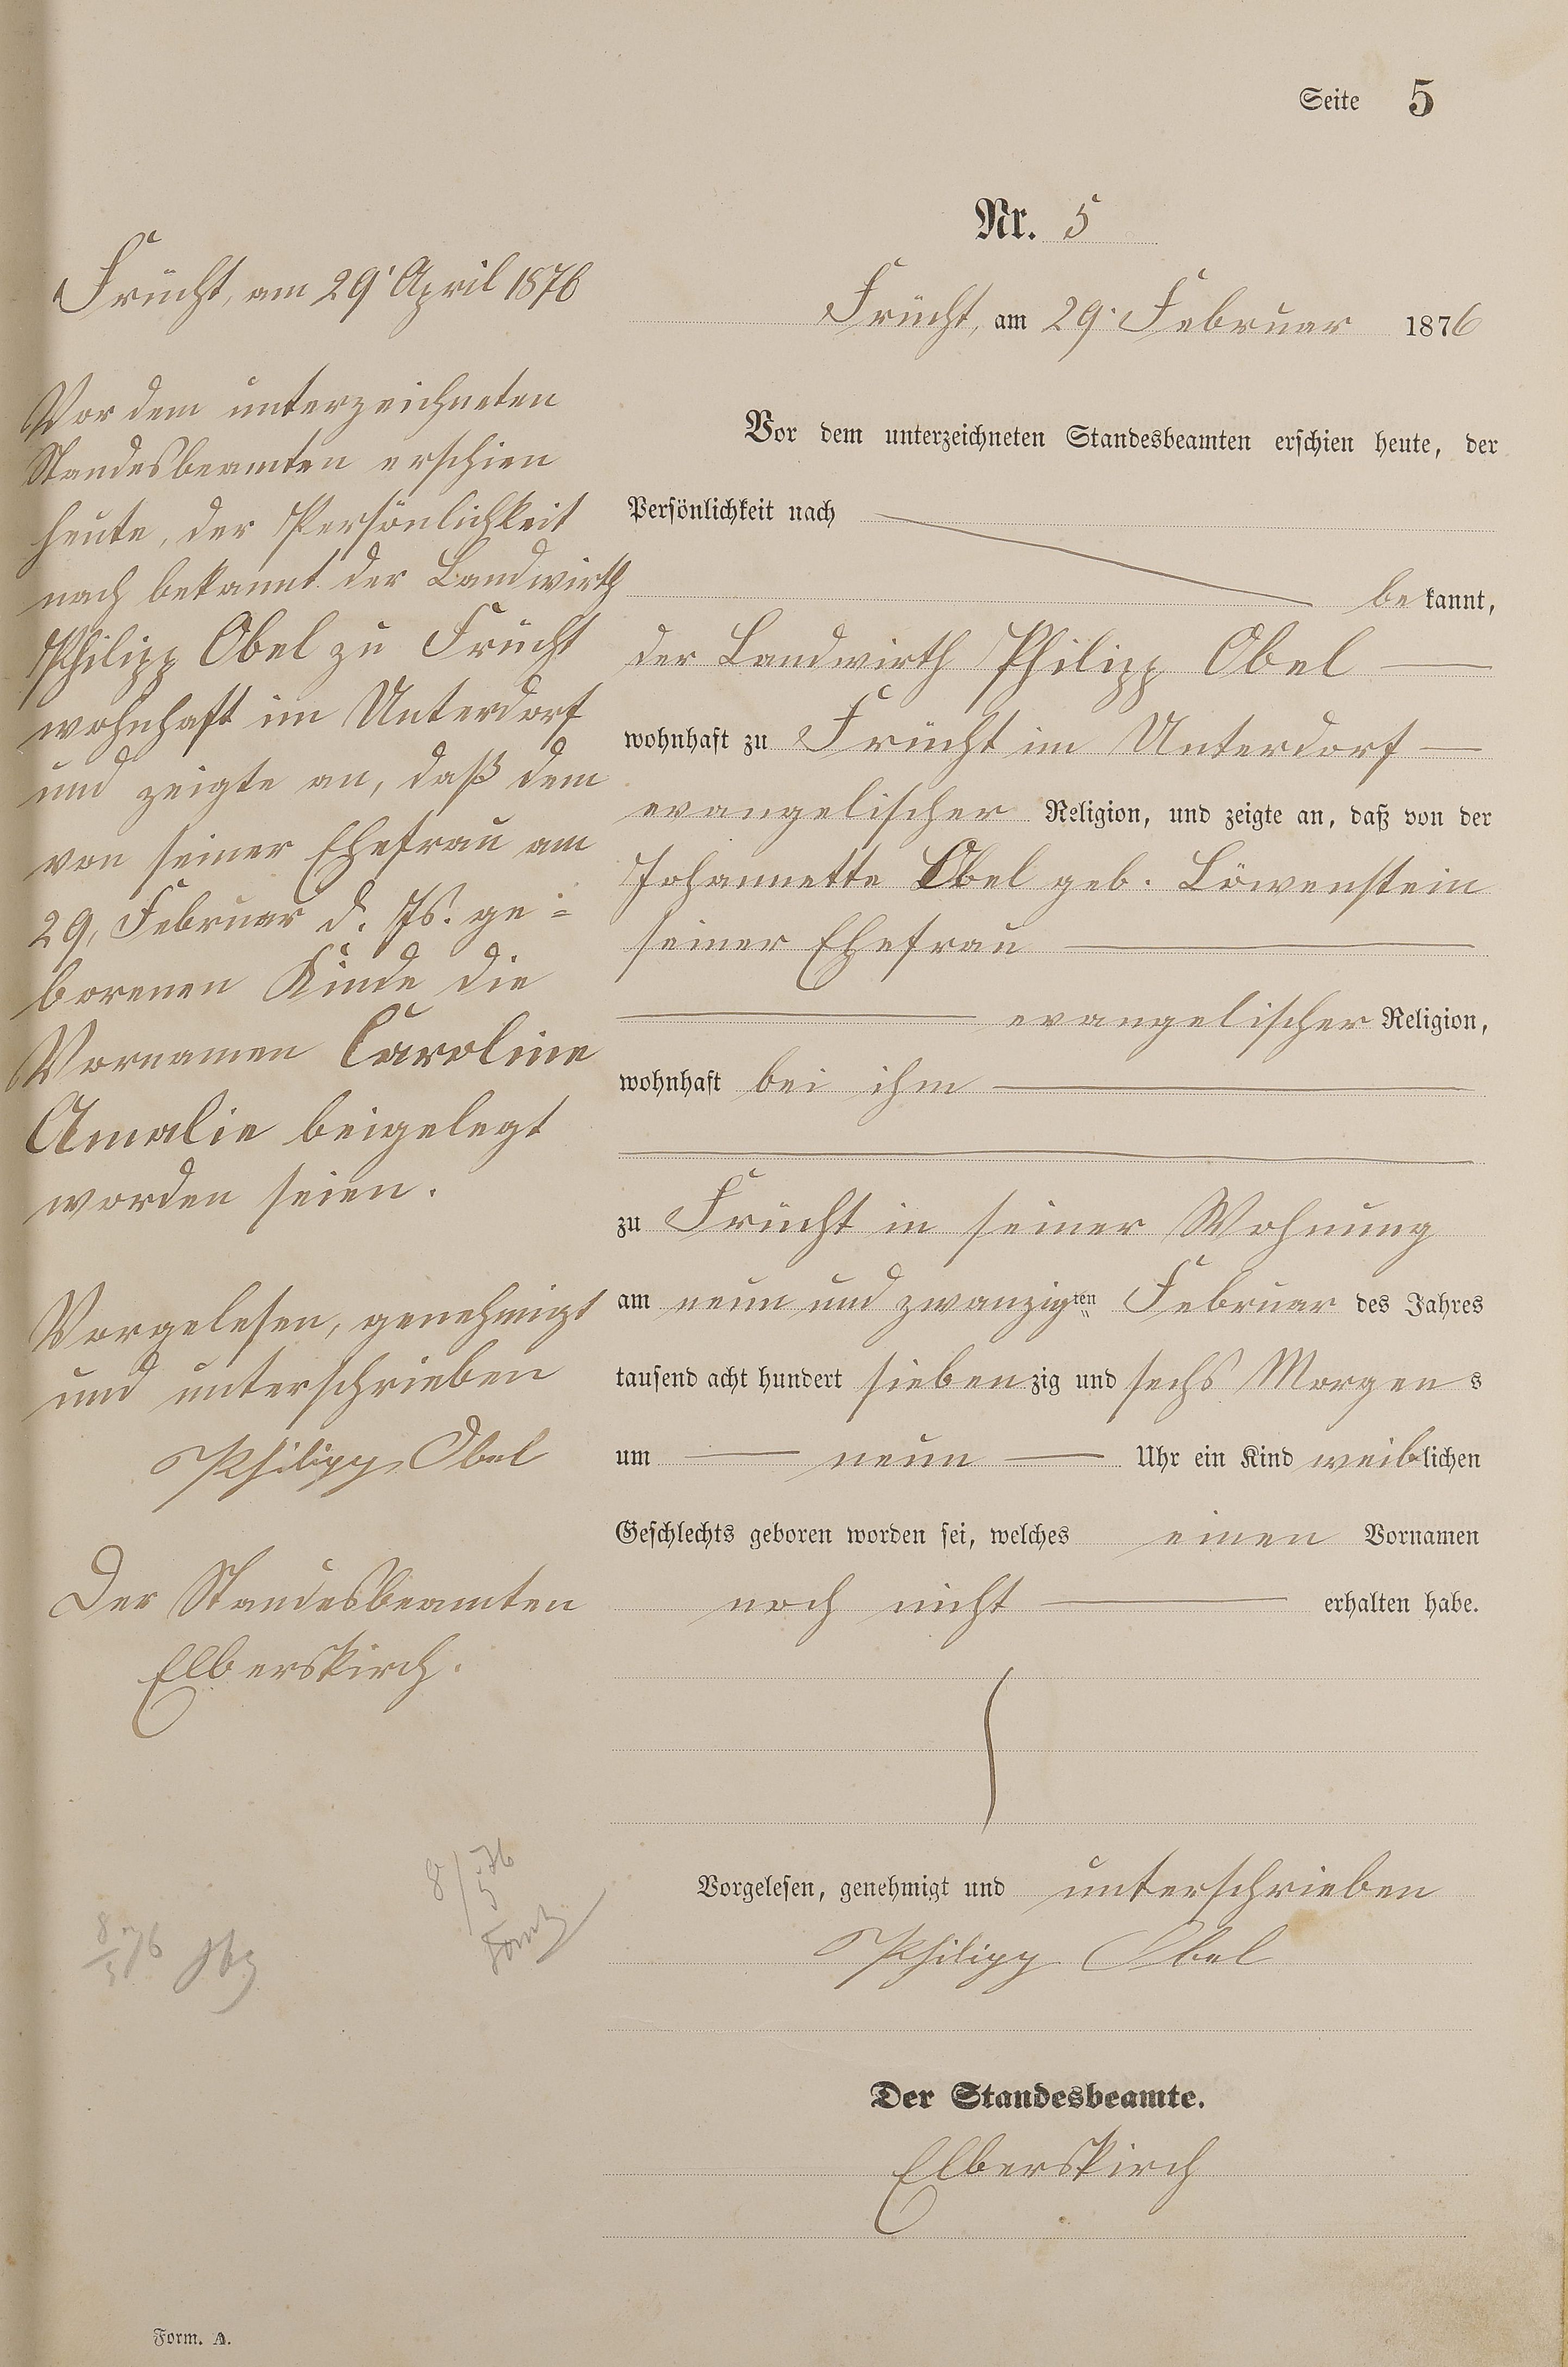 Seite 5
Nr. 5
Frücht, am 29. April 1876
Vor dem unterzeichneten
Standesbeamten erschien
heute, der Persönlichkeit
nach bekannt der Landwirth
Philipp Obel zu Frücht
wohnhaft im Unterdorf
und zeigte an, daß dem
von seiner Ehefrau am
29, Februar d. Js. ge=
borenen Kinde die
Vornamen Caroline
Amalie beigelegt
worden seien.
Vorgelesen, genehmigt
und unterschrieben
Philipp Obel
Der Standesbeamten
Elberskirch.
8/5 76
8/5 76
Frücht, am 29. Februar 1876
Vor dem unterzeichneten Standesbeamten erschien heute, der
Persönlichkeit nach
bekannt,
der Landwirth Philipp Obel
wohnhaft zu Frücht im Unterdorf
evangelischer Religion, und zeigte an, daß von der
Johannette Obel geb. Löwenstein
seiner Ehefrau
evangelischer Religion,
wohnhaft bei ihm
zu Frücht in seiner Wohnung
am neun und zwanzigten Februar des Jahres
tausend acht hundert siebenzig und sechs Morgens
um neun Uhr ein Kind weiblichen
Geschlechts geboren worden sei, welches einen Vornamen
noch nicht erhalten habe.
Vorgelesen, genehmigt und unterschrieben
Philipp Obel
Der Standesbeamte.
Elberskirch
Form. A.